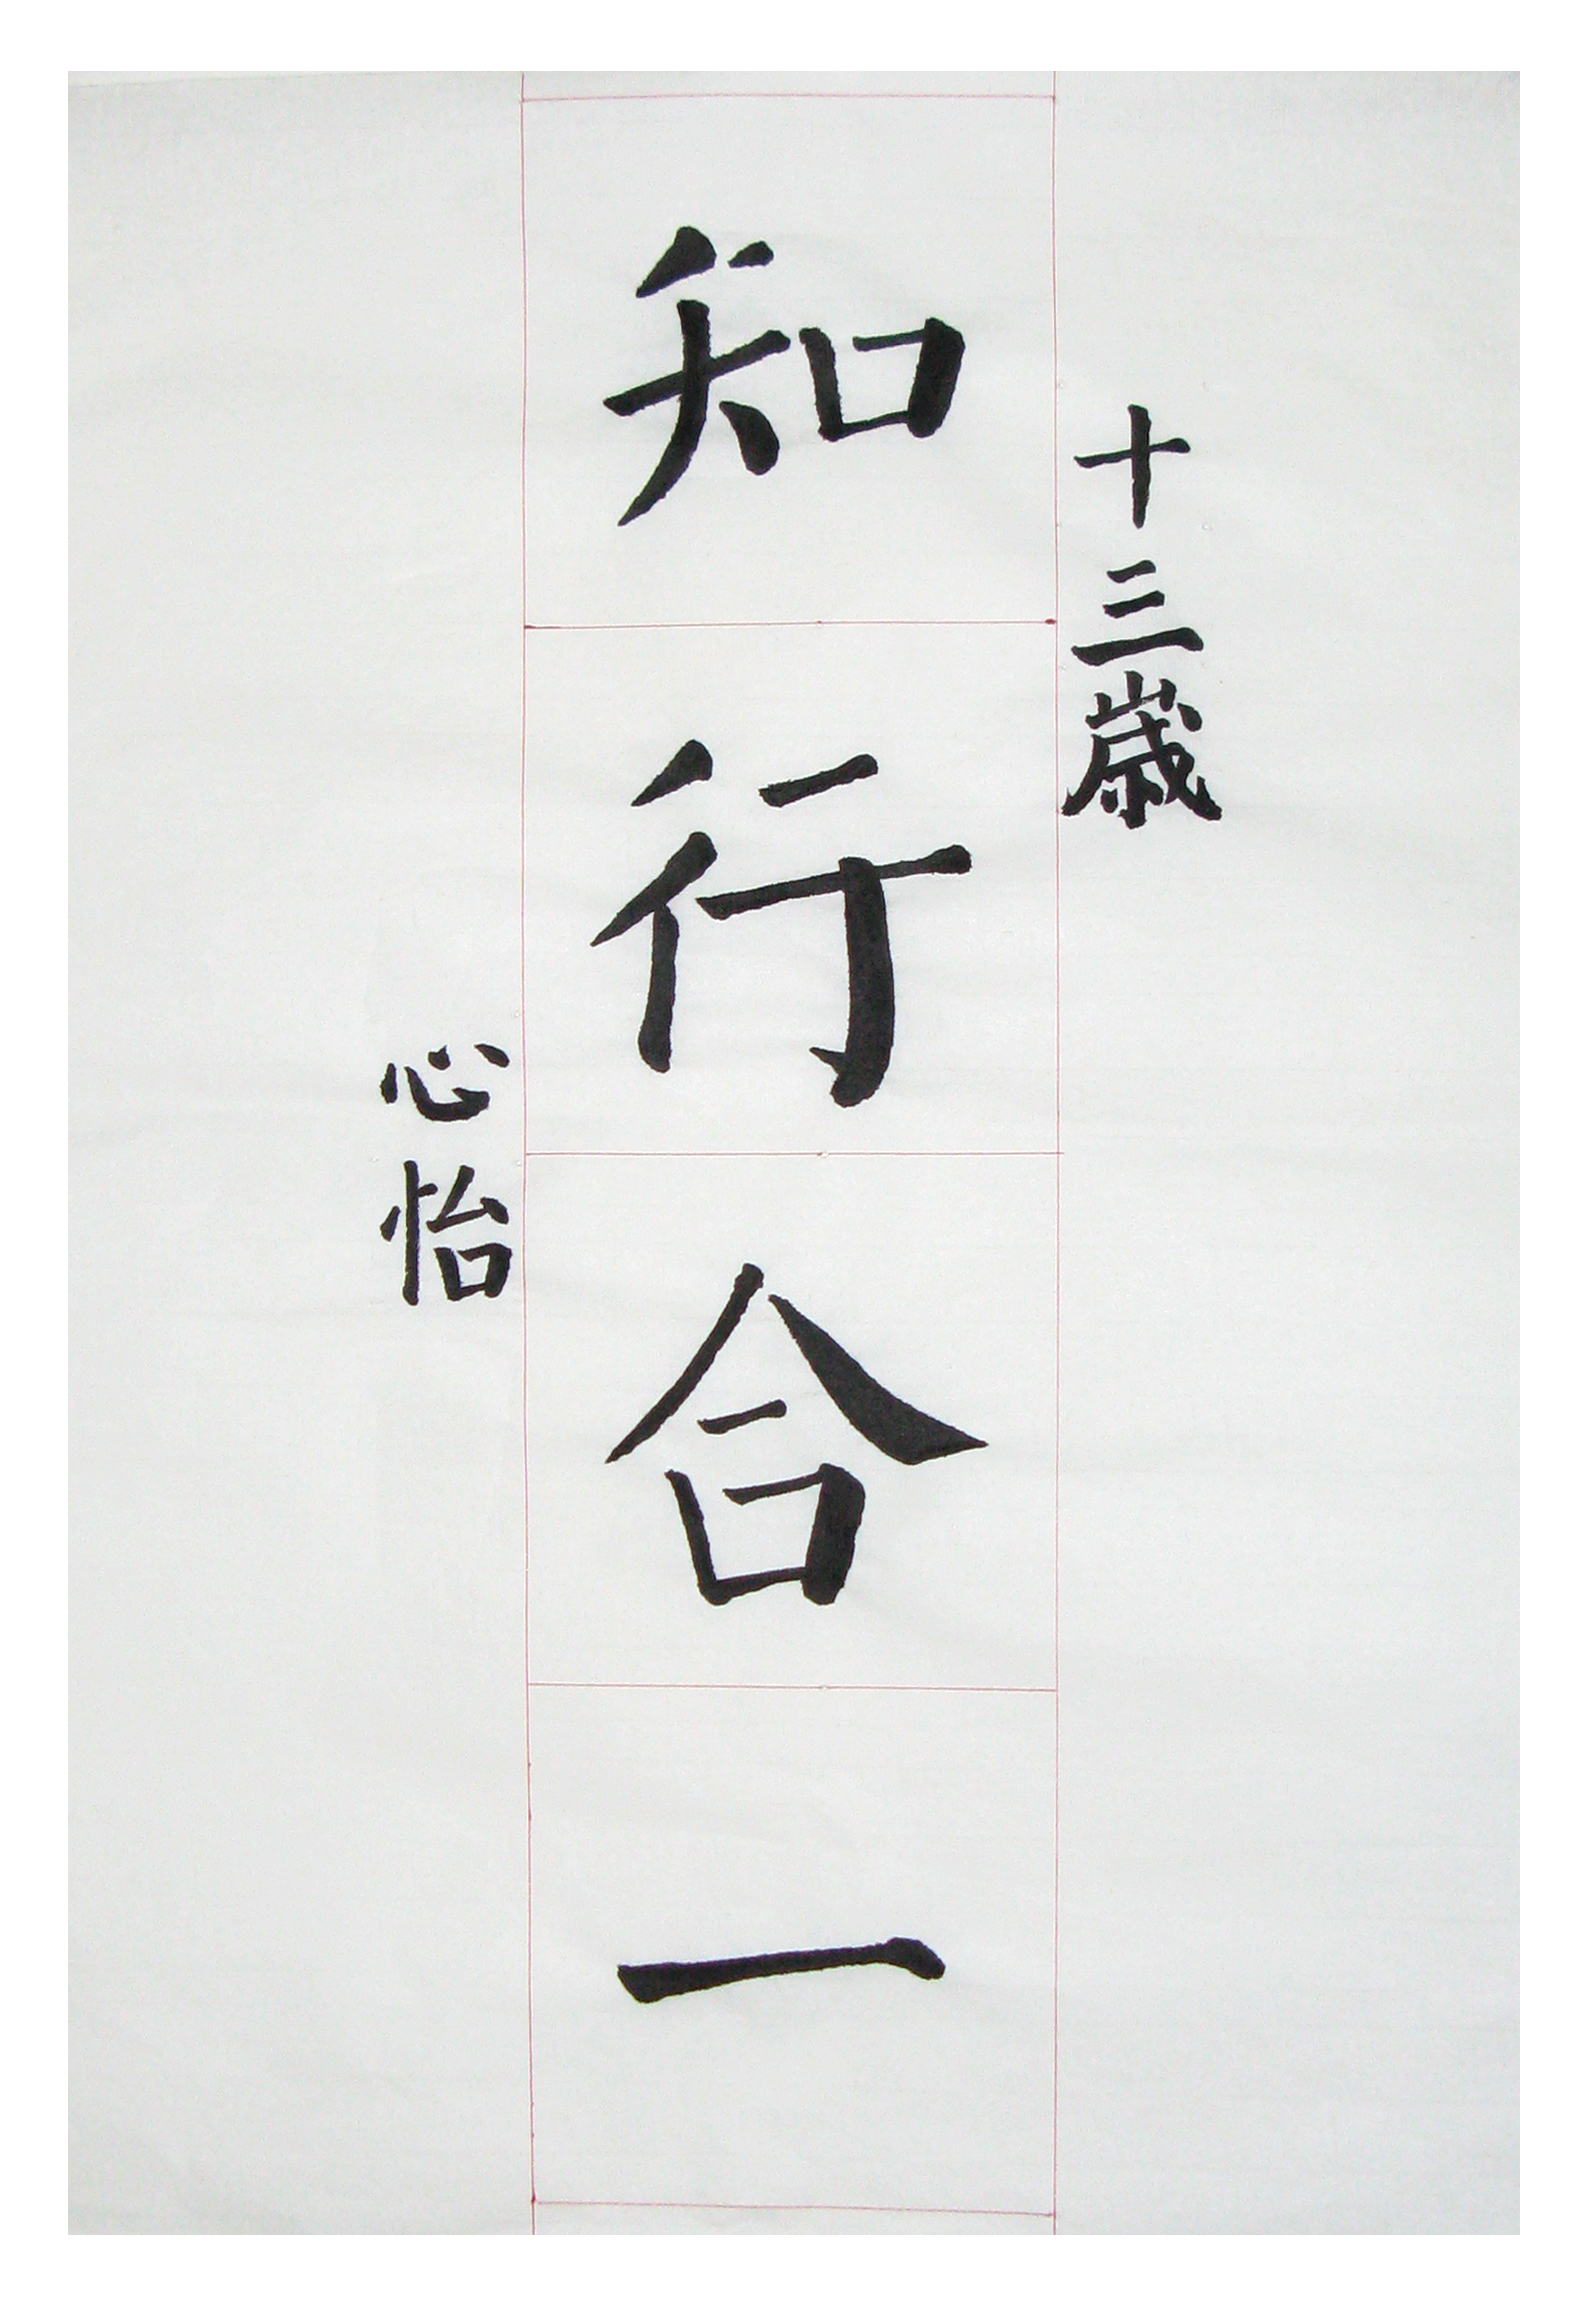 十三歳
知行合一
心怡